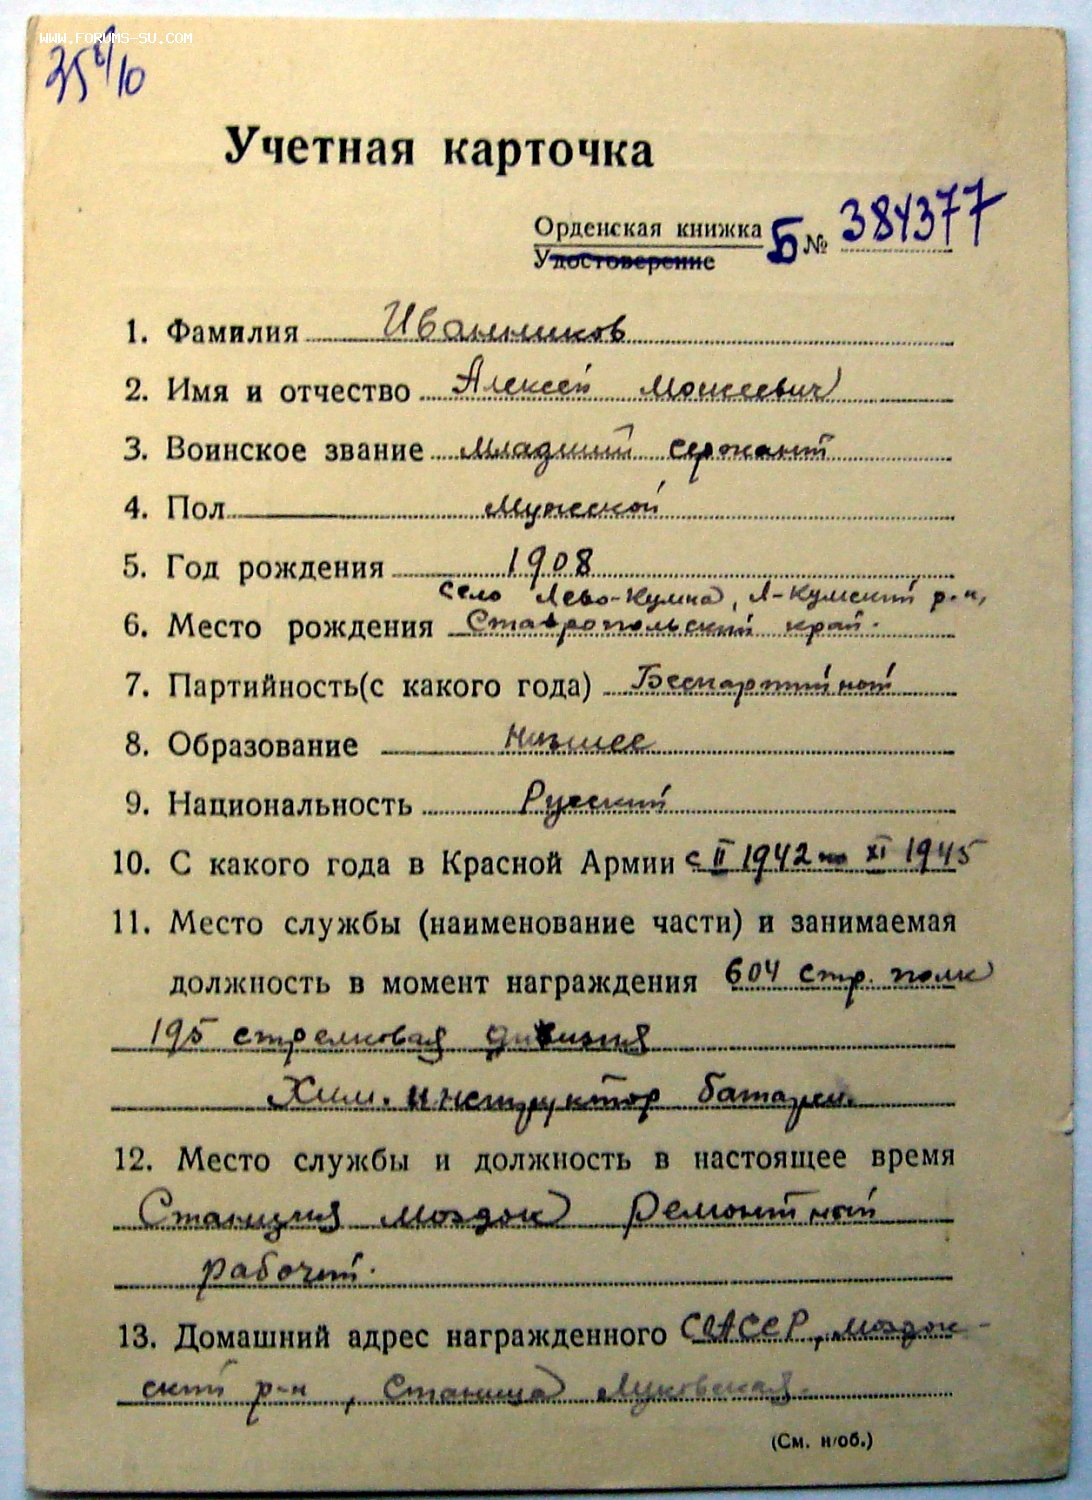 www.forums-su.com
Учетная карточка
Орденская книжка Б № 384377
Удостоверение
1. Фамилия Иванников
2. Имя и отчество Алексей Моисеевич
3. Воинское звание младший сержант
4. Пол мужской
5. Год рождения 1908
село Лево-Кумка, Л-Кумский р-н,
6. Место рождения Ставропольский край.
7. Партийность(с какого года) Беспартийный
8. Образование низшее
9. Национальность Русский
10. С какого года в Красной Армии с II 1942 по XI 1945
11. Место службы (наименование части) и занимаемая
должность в момент награждения 604 стр. полк
195 стрелковая дивизия
Хим. инструктор батареи.
12. Место службы и должность в настоящее время
Станция Моздок Ремонтный
рабочий.
13. Домашний адрес награжденного СОАССР, Моздок-
ский р-н, станица Луковская.
(См. н/об.)